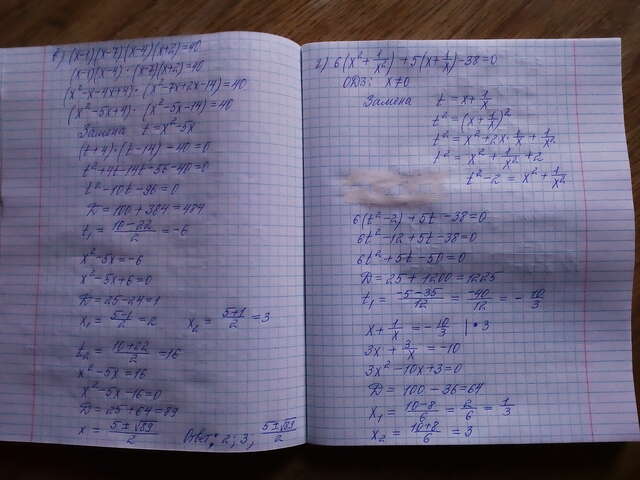 в) (x-1)(x-7)(x-4)(x+2)=40
(x-1)(x-4)·(x-7)(x+2)=40
(x²-x-4x+4)·(x²-7x+2x-14)=40
(x²-5x+4)·(x²-5x-14)=40
Замена t=x²-5x
(t+4)·(t-14)-40=0
t²+4t-14t-56-40=0
t²-10t-96=0
D=100+384=484
t₁=(10-22)/2=-6
x²-5x=-6
x²-5x+6=0
D=25-24=1
x₁=(5-1)/2=2 x₂=(5+1)/2=3
t₂=(10+22)/2=16
x²-5x=16
x²-5x-16=0
D=25+64=89
x=(5±√89)/2 Ответ: 2; 3, (5±√89)/2
г) 6(x²+1/x²)+5(x+1/x)-38=0
ОДЗ: x≠0
Замена t=x+1/x
t²=(x+1/x)²
t²=x²+2x·1/x+1/x²
t²=x²+1/x²+2
t²-2=x²+1/x²
6(t²-2)+5t-38=0
6t²-12+5t-38=0
6t²+5t-50=0
D=25+1200=1225
t₁=(-5-35)/12=-40/12=-10/3
x+1/x=-10/3 |·3
3x+3/x=-10
3x²-10x+3=0
D=100-36=64
x₁=(10-8)/6=2/6=1/3
x₂=(10+8)/6=3